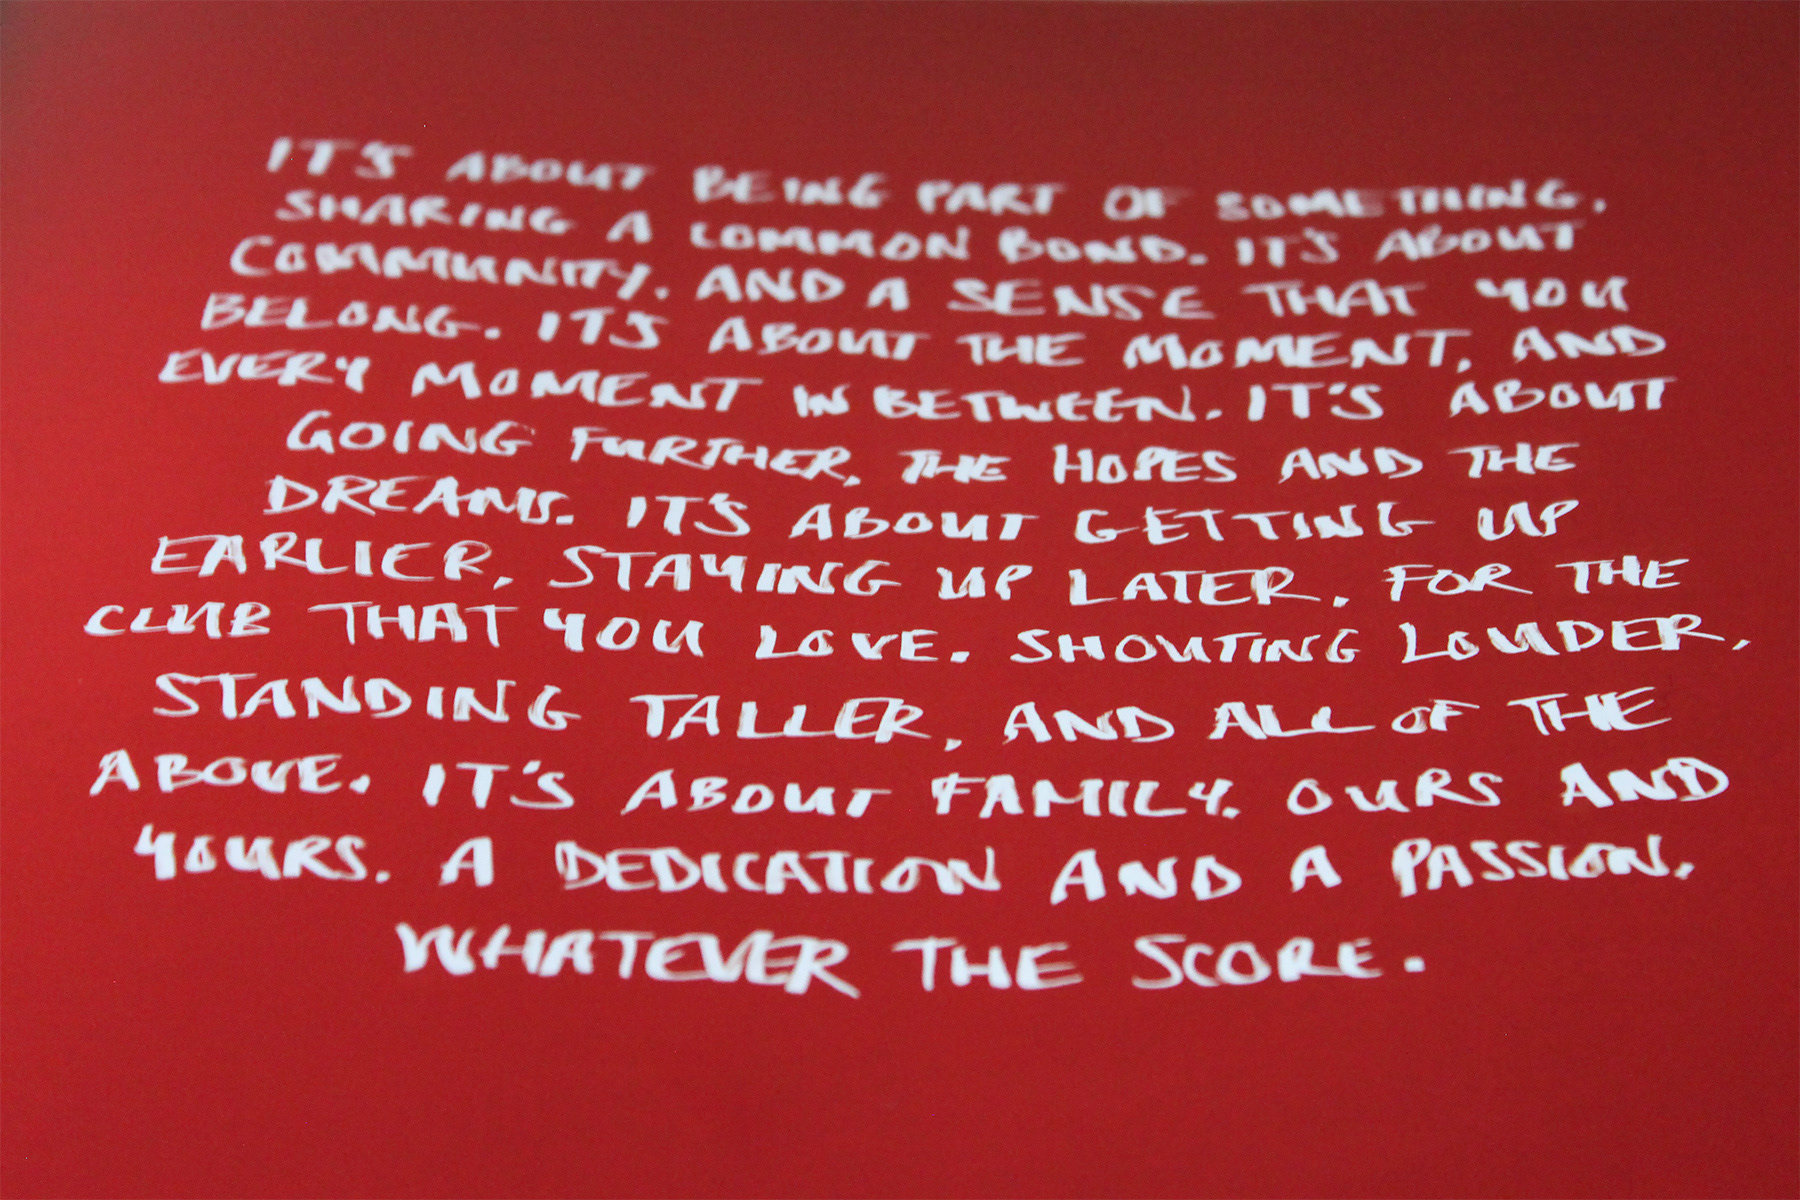 IT'S ABOUT BEING PART OF SOMETHING.
SHARING A COMMON BOND. IT'S ABOUT
COMMUNITY. AND A SENSE THAT YOU
BELONG. IT'S ABOUT THE MOMENT, AND
EVERY MOMENT IN BETWEEN. IT'S ABOUT
GOING FURTHER, THE HOPES AND THE
DREAMS. IT'S ABOUT GETTING UP
EARLIER, STAYING UP LATER, FOR THE
CLUB THAT YOU LOVE. SHOUTING LOUDER,
STANDING TALLER, AND ALL OF THE
ABOVE. IT'S ABOUT FAMILY. OURS AND
YOURS. A DEDICATION AND A PASSION,
WHATEVER THE SCORE.